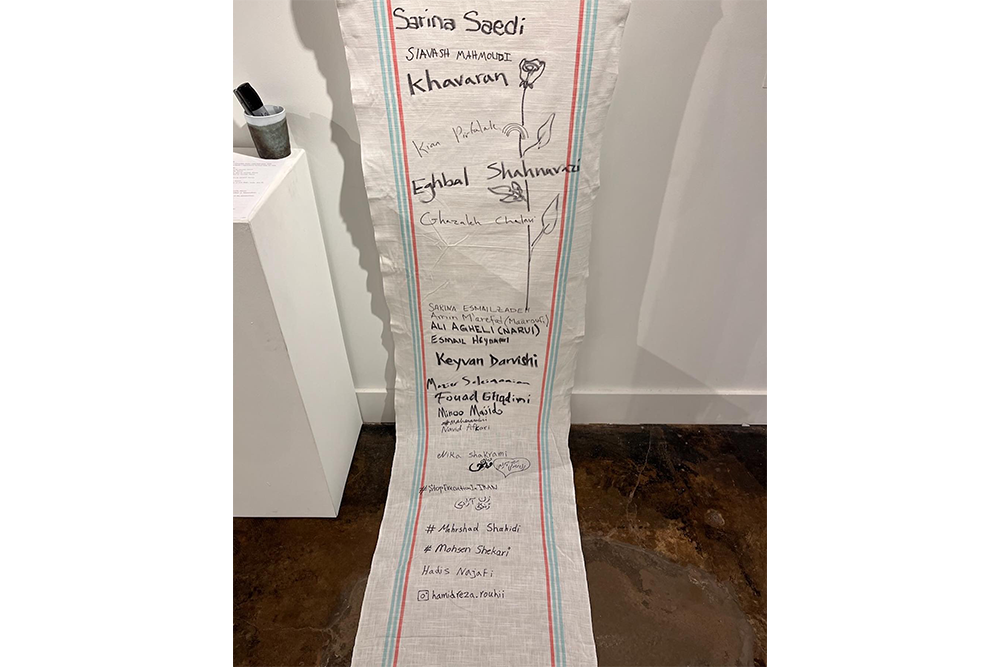 Sarina Saedi
SIAVASH MAHMOUDI
Khavaran
Kian Pirfalak
Eghbal Shahnavazi
Ghazaleh Chalavi
SAKINA ESMAILZADEH
Amin M'arefat (Maaroufi)
ALI AGHELI (NARUI)
ESMAIL HEYDARI
Keyvan Darvishi
Mazier Soleimanian
Fouad Ghadimi
Minoo Majidi
Navid Afkari
Nika Shakrami
#StopExecutionInIRAN
زن
زندگی آزادی
# Mehrshad Shahidi
# Mohsen Shekari
Hadis Najafi
hamidreza.rouhii